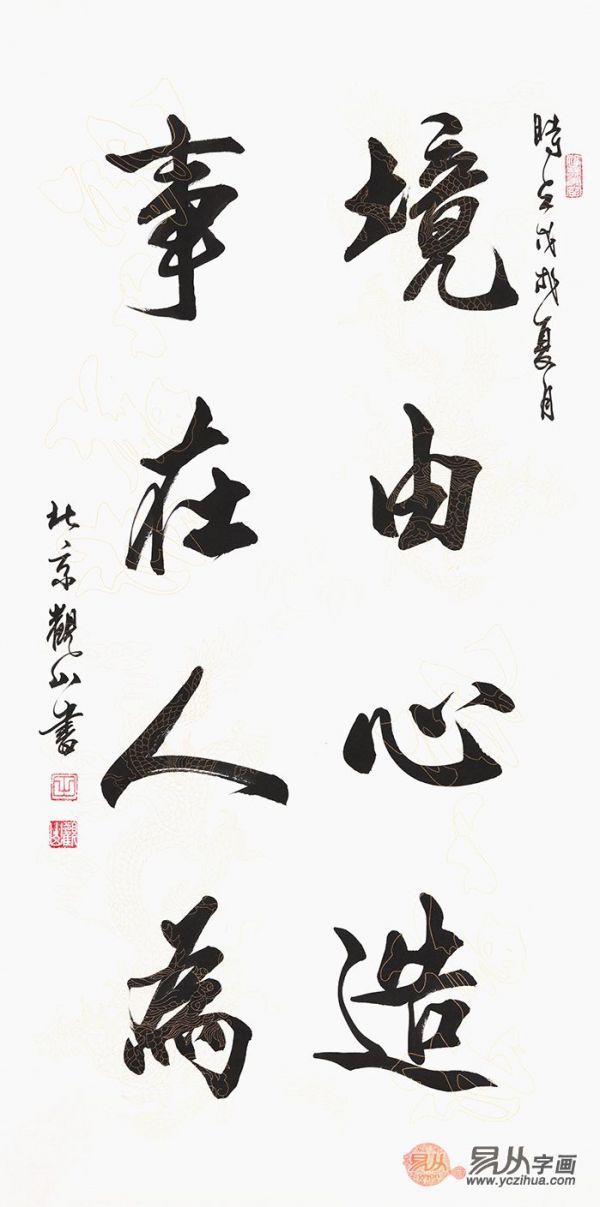 時在戊戌夏月
境由心造
事在人為
北京觀山書
山
觀山
易从字画
www.yczihua.com